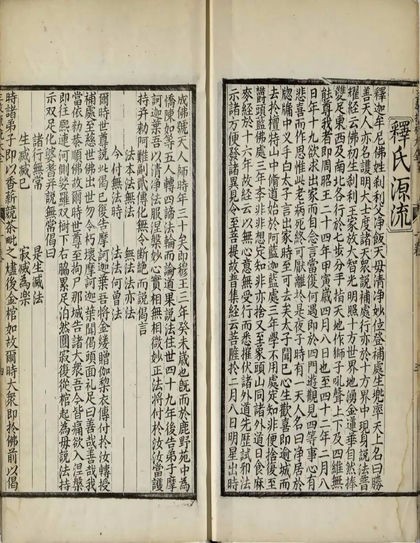 釋氏源流
釋迦牟尼佛姓刹利父淨飯天母清淨妙位登補處生兜率天上名曰勝
善天人亦名護明大士度諸天衆説補處行亦於十方界中現身説法普
耀經云佛初生刹利王家放大智光明照十方世界地湧金蓮華自然捧
雙足東西及南北各行於七步分手指天地作師子吼聲上下及四維無
能尊我者即周昭王二十四年甲寅歳四月八日也至四十二年二月八
日年十九欲求出家而自念言當復何遇即於四門遊觀見四等事心有
悲喜而作思惟此老病死終可厭離於是夜子時有一天人名曰淨居於
牕牖中叉手白太子言出家時至可去矣太子聞已心生歡喜即逾城而
去於檀特山中修道始於阿藍迦藍處三年學不用處定知非便捨復至
鬱頭藍佛處三年學非非想定知非亦捨又至象頭山同諸外道日食麻
麥經於六年故經云以無心意無受行而悉摧伏諸外道先歴試邪法
示諸方便發諸異見令至菩提故普集經云菩薩於二月八日明星出時
成佛號天人師時年三十矣即穆王三年癸未歳也既而於鹿野苑中爲
憍陳如等五人轉四諦法輪而論道果説法住世四十九年後告弟子摩
訶迦葉吾以清淨法眼涅槃妙心實相無相微妙正法將付於汝汝當護
持并勅阿難副貳傳化無令斷絶而説偈言
法本法無法　無法法亦法
今付無法時　法法何曾法
爾時世尊説此偈已復告摩訶迦葉吾將金縷僧伽梨衣傳付於汝轉授
補處至慈世佛出世勿令朽壞摩訶迦葉聞偈頭面禮足曰善哉善哉我
當依勅恭順佛故爾時世尊至拘尸那城告諸大衆吾今背痛欲入涅槃
即往熙連河側娑羅雙樹下右脇累足泊然圓寂復從棺起爲母説法特
示雙足化婆耆并説無常偈曰
諸行無常　是生滅法
生滅滅已　寂滅爲樂
時諸弟子即以香薪競荼毗之燼後金棺如故爾時大衆即於佛前以偈